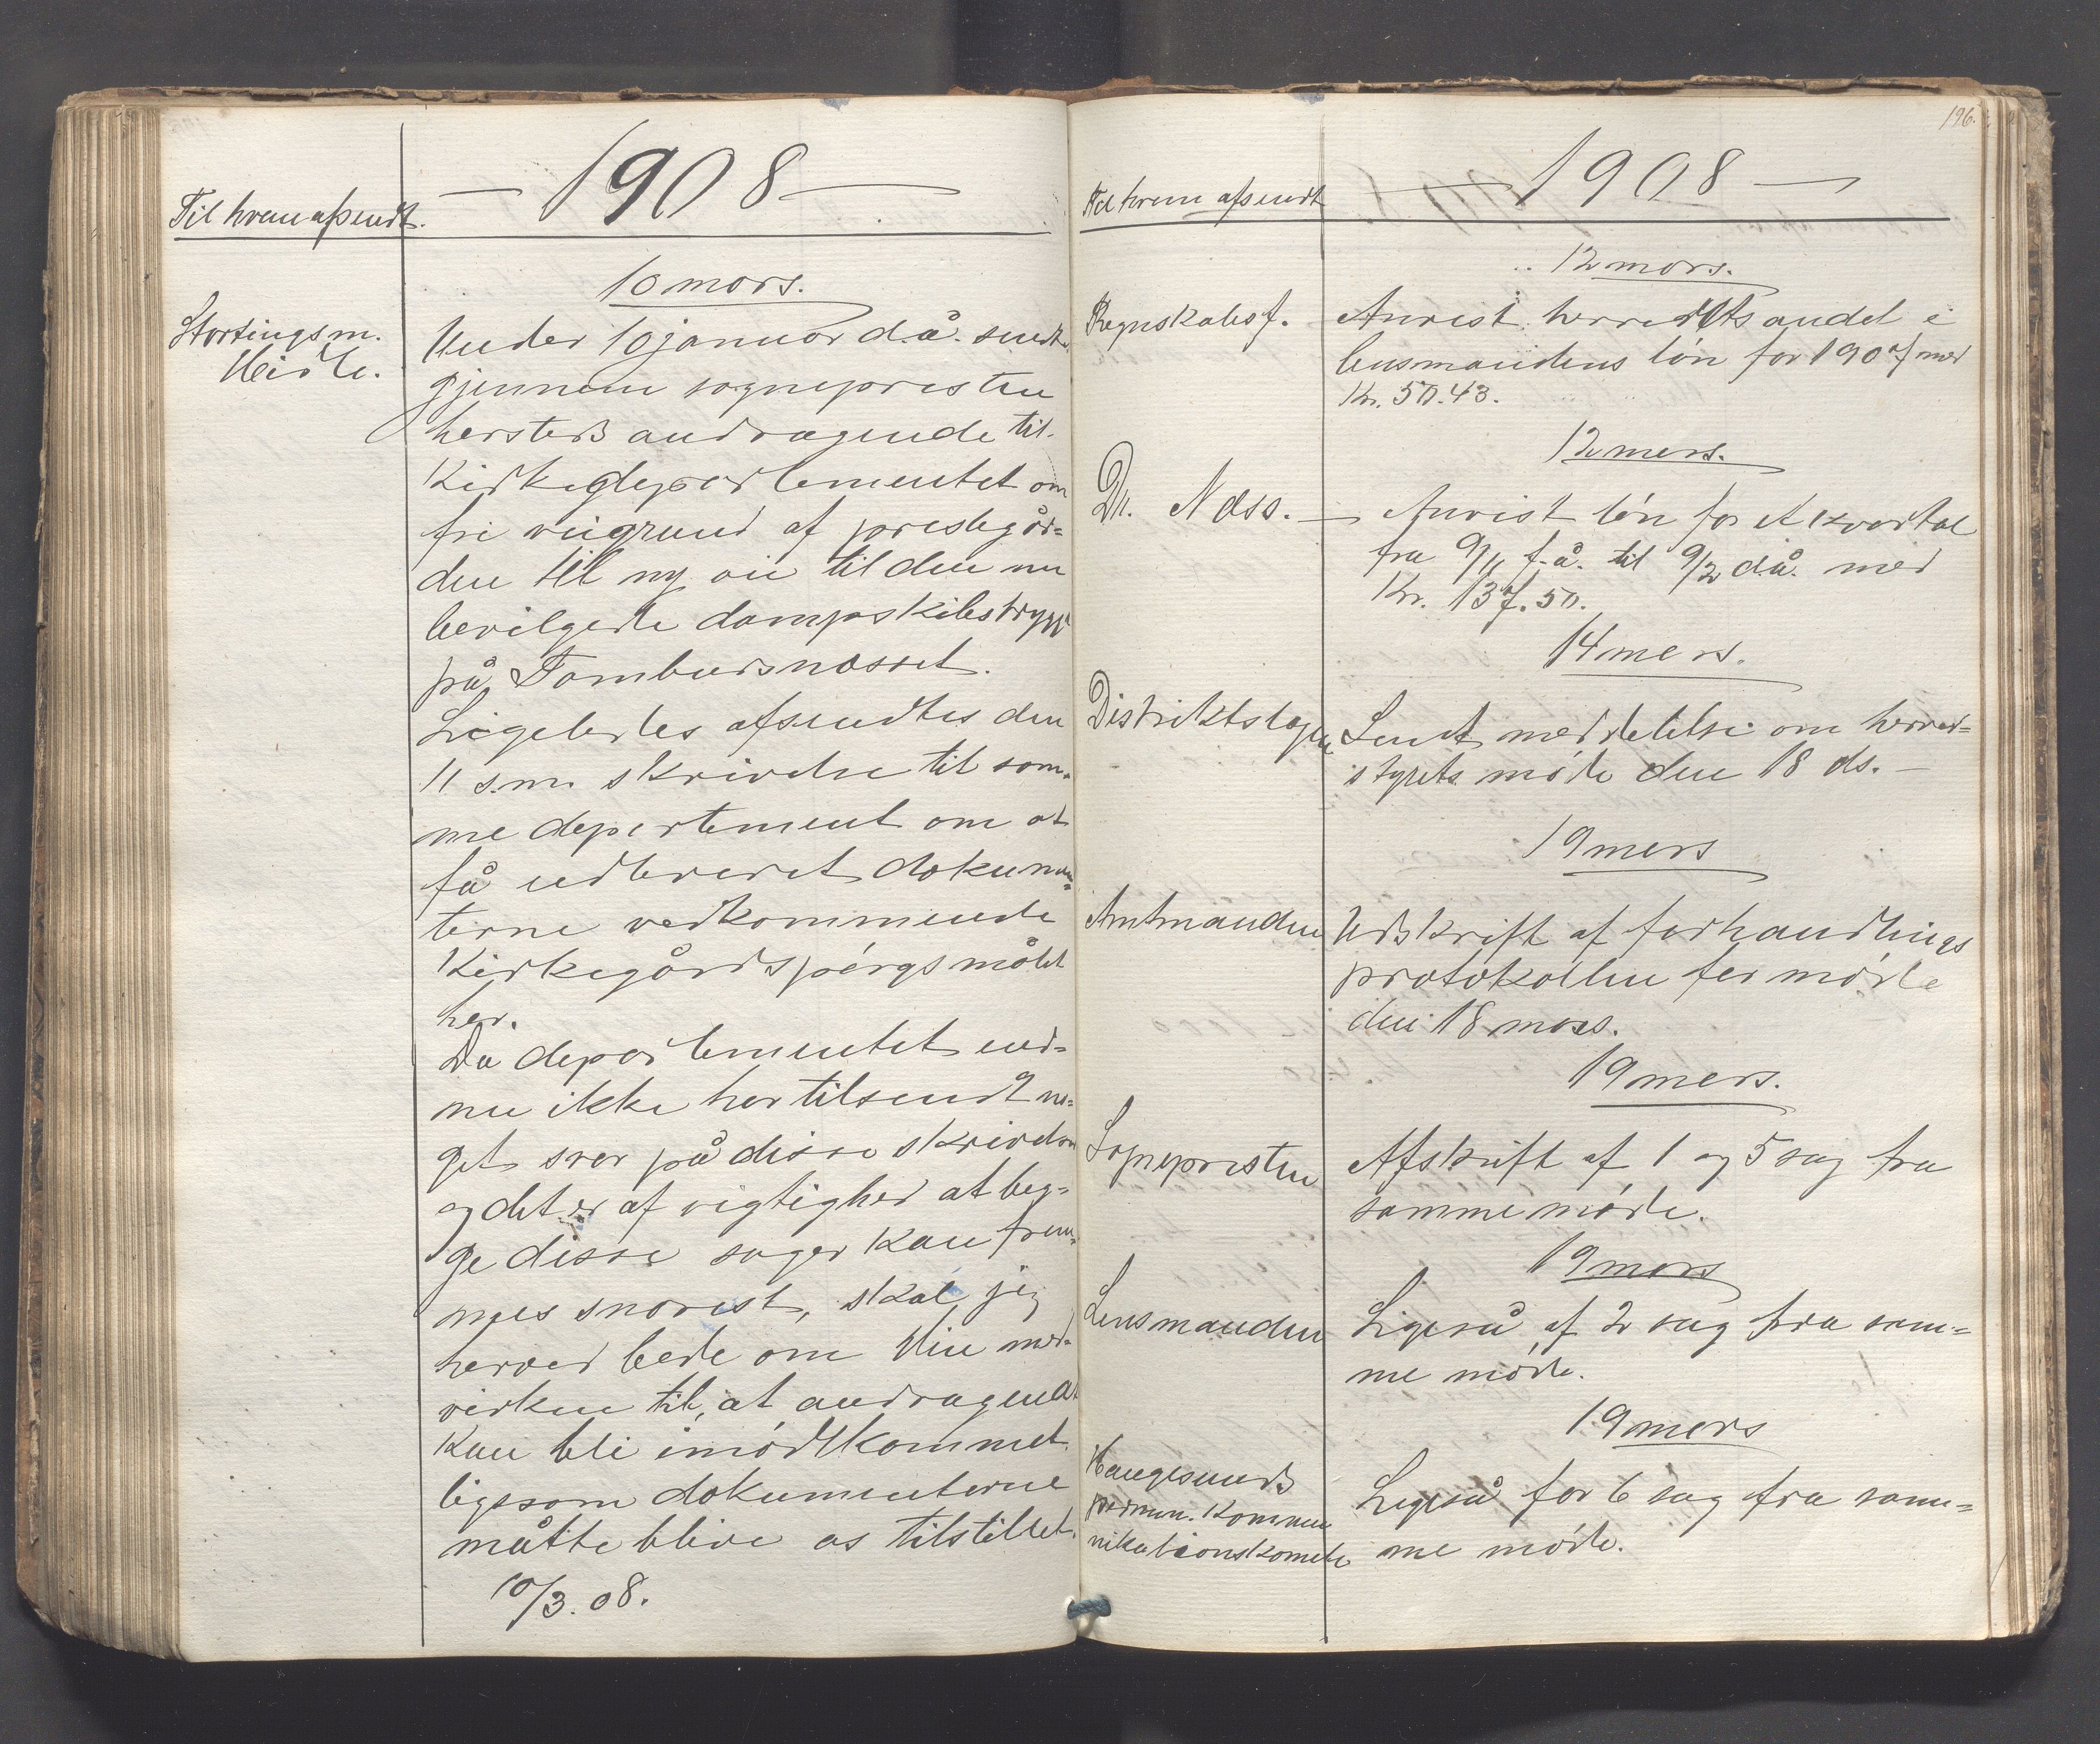 Til hvem afsendt.
— 1908 —
10 mars.
Stortingsm.
Eide.
Under 10 januar d.å. sendt
gjennem sognepresten
herstedß andragende til
Kirkedepartementet om
fri veigrund af prestegår=
den til ny vei til den nu
bevilgede dampskibsbrygge
på Tombursnæsset.
Ligeledes afsendtes den
11 s.m. skrivelse til sam=
me departement om at
få udleveret dokumen=
terne vedkommende
Kirkegårdspørgsmålet
her.
Da departementet end=
nu ikke har tilsendt no=
get svar på disse skrivelser
og det er af vigtighed at beg=
ge disse sager kan frem=
mes snarest, skal jeg
herved bede om Din med=
virken til, at andragendet
kan bli imødekommet
ligesom dokumenterne
måtte blive os tilstillet.
10/3. 08.
196.
Til hvem afsendt
— 1908 —
12 mars.
Regnskabsf.
Anvist herredets andel i
lensmandens løn for 1907 med
Kr. 50.43.
12 mars.
Dr. Næss. —
Anvist løn for et kvartal
fra 9/11 f.å. til 9/2 d.å. med
Kr. 137.50.
14 mars.
Distriktslægen
Sendt meddelelse om herred=
styrets møde den 18 ds. —
19 mars
Amtmanden
Udskrift af forhandlings
protokollen for møde
den 18 mars.
19 mars.
Sognepresten
Afskrift af 1 og 5 sag fra
samme møde.
19 mars
Lensmanden
Ligeså af 2 sag fra sam=
me møde.
19 mars
Haugesunds
perman. kommu
nikationskomite
Ligeså for 6 sag fra sam=
me møde.